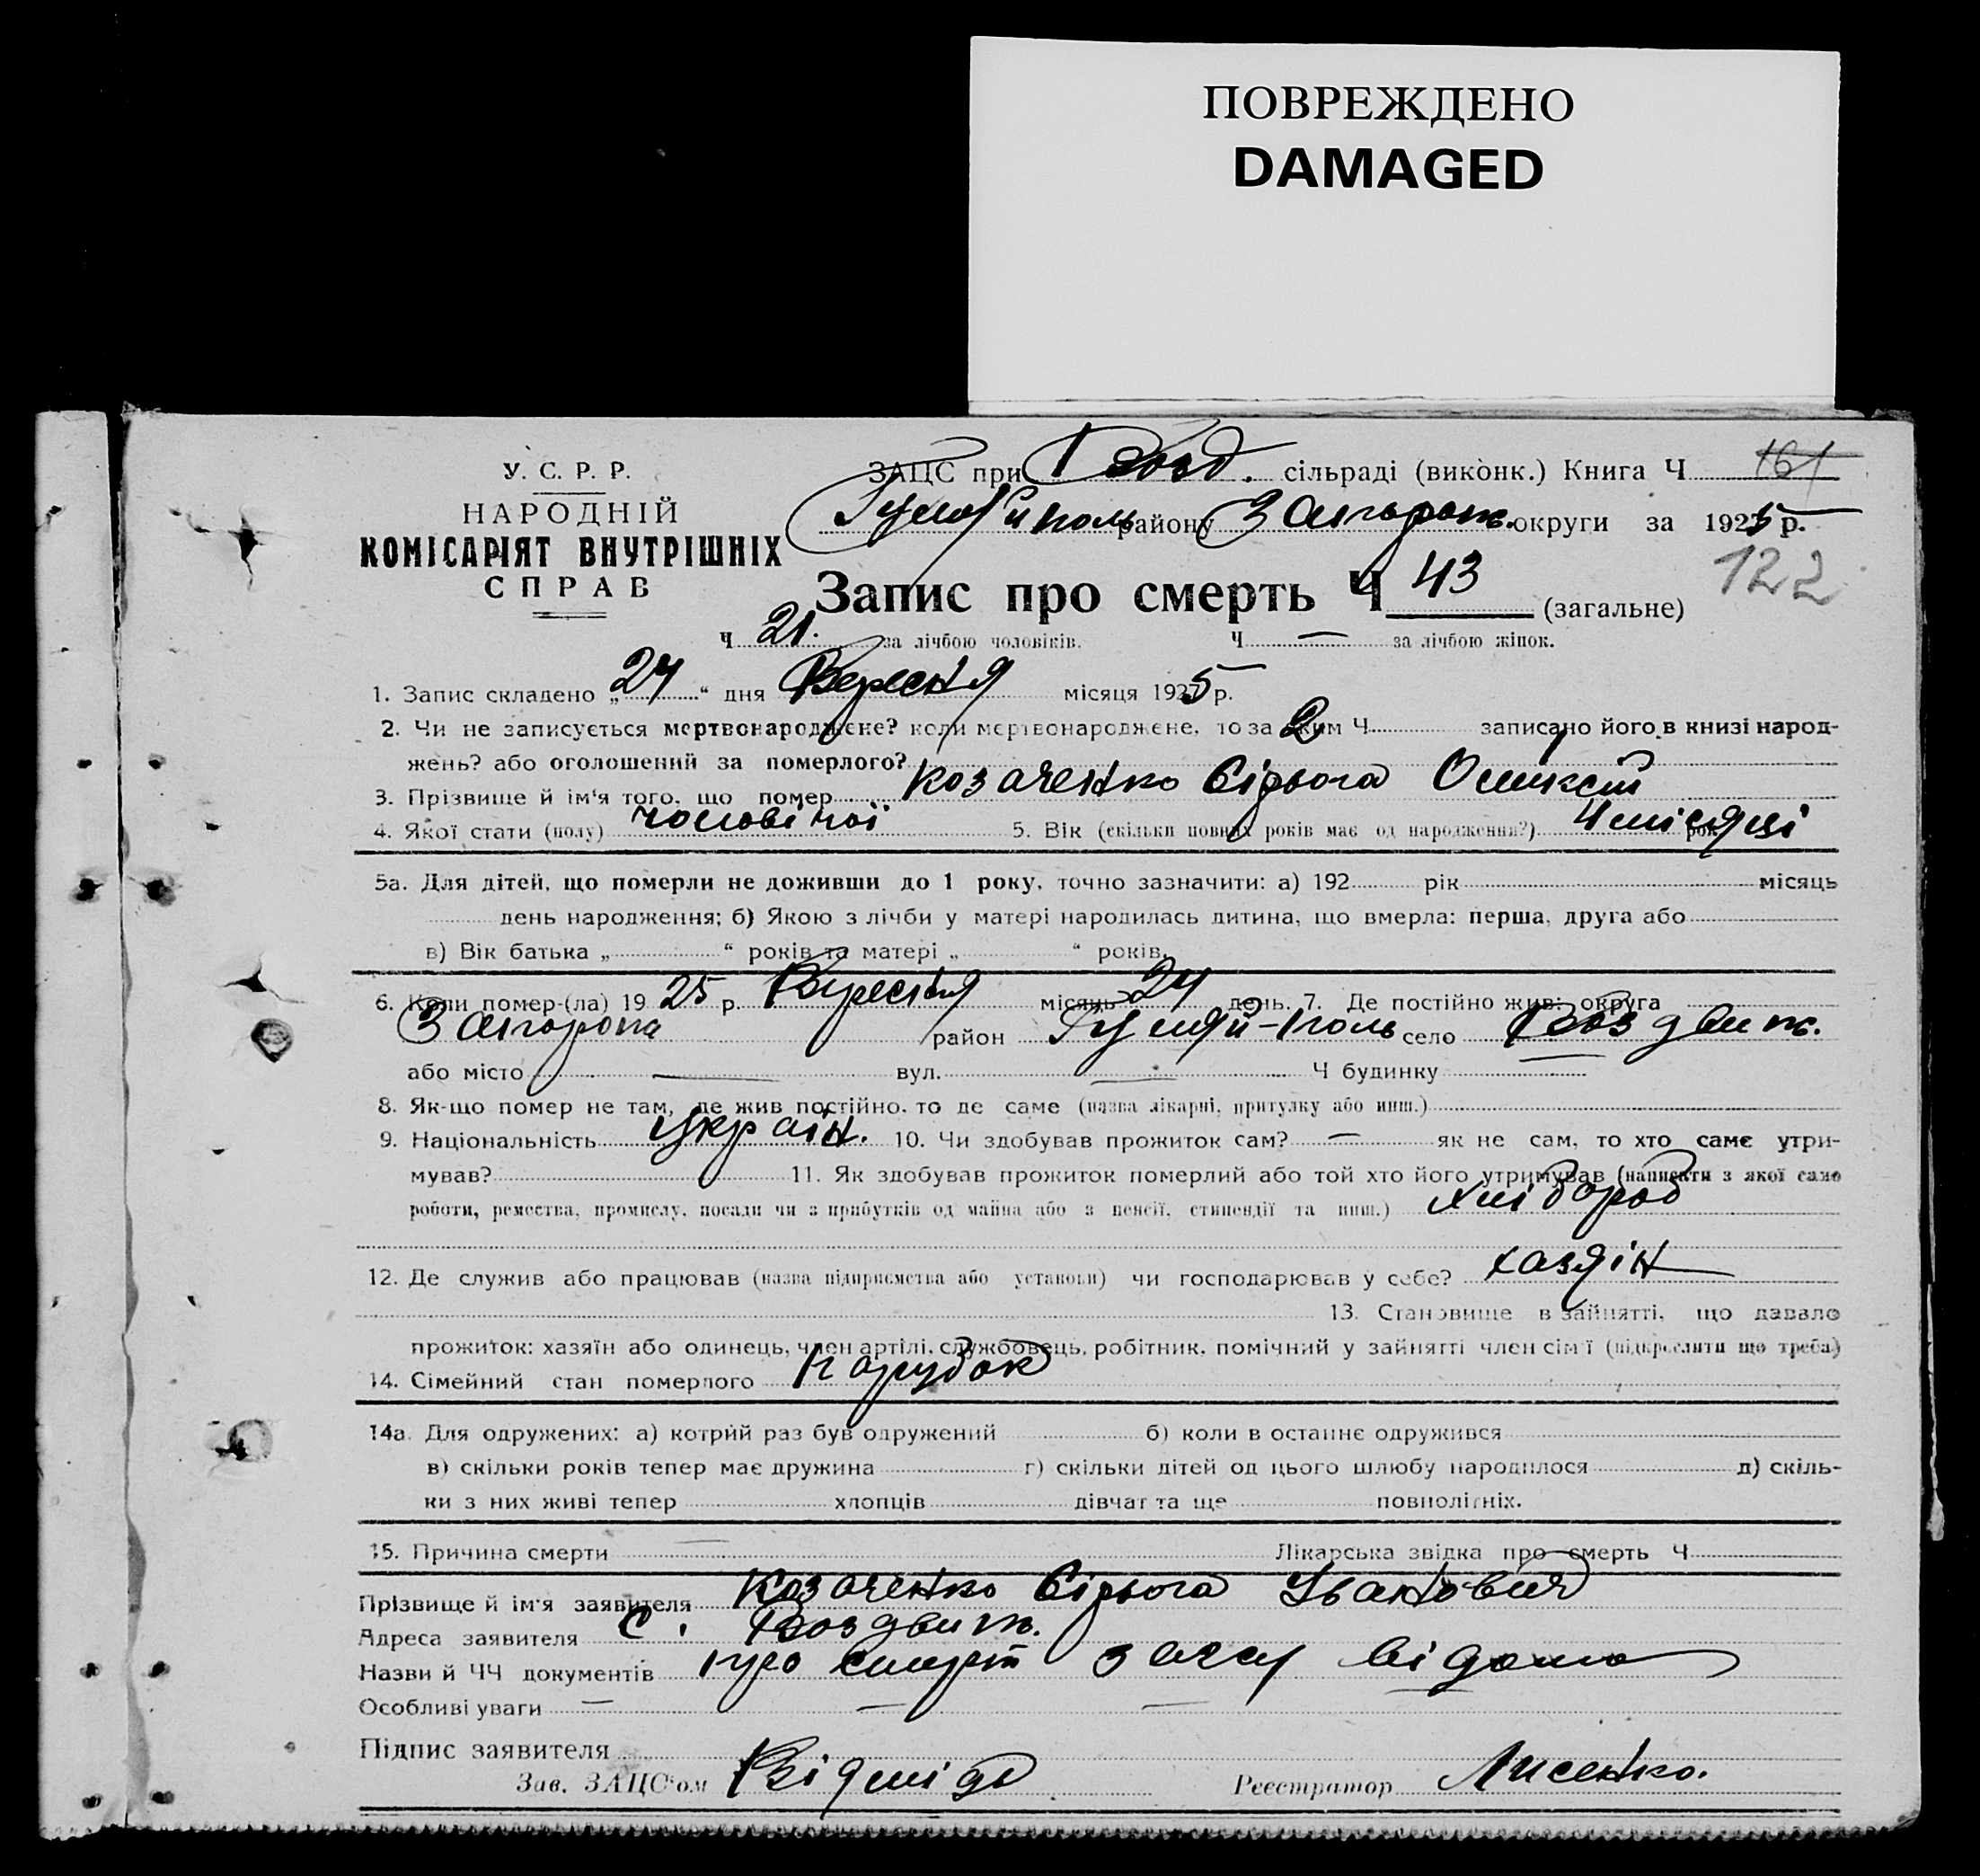 ПОВРЕЖДЕНО
DAMAGED
У. С. Р. Р.
НАРОДНІЙ
КОМІСАРІЯТ ВНУТРІШНІХ
СПРАВ
ЗАЦС при Возд. сільраді (виконк.) Книга Ч 161
району Запорож. округи за 1925 р.
122
Запис про смерть Ч 43 (загальне)
Ч 21. за лічбою чоловіків. Ч — за лічбою жінок.
1. Запис складено „24“ дня Вересня місяця 1925 р.
2. Чи не записується мертвонароджене? коли мертвонароджене, то за яким Ч записано його в книзі народ-
жень? або оголошений за померлого?
3. Прізвище й ім'я того, що помер Козаченко Сірьога
4. Якої стати (полу) чоловічої 5. Вік (скільки повних років має од народження?) 4 місяці рок
5а. Для дітей, що померли не доживши до 1 року, точно зазначити: а) 192 рік місяць
день народження; б) Якою з лічби у матері народилась дитина, що вмерла: перша, друга або
в) Вік батька „ “ років та матері „ “ років.
6. Коли помер-(ла) 1925 р. Вересня місяць 24 день. 7. Де постійно жив: округа
Запорожа район Гуляй-Поль село Воздвиж.
або місто — вул. — Ч будинку —
8. Як-що помер не там, де жив постійно, то де саме (назва лікарні, притулку або инш.)
9. Національність Україн. 10. Чи здобував прожиток сам? — як не сам, то хто саме утри-
мував? 11. Як здобував прожиток померлий або той хто його утримував (написати з якої само
роботи, ремества, промислу, посади чи з прибутків од майна або з пенсії, стипендії та инш.) хлібороб
12. Де служив або працював (назва підприємства або установи) чи господарював у себе? хазяїн
13. Становище в зайнятті, що давало
прожиток: хазяїн або одинець, член артілі, службовець, робітник, помічний у зайнятті член сім'ї (підкреслити що треба)
14. Сімейний стан померлого парубок
14а. Для одружених: а) котрий раз був одружений б) коли в останнє одружився
в) скільки років тепер має дружина г) скільки дітей од цього шлюбу народилося д) скіль-
ки з них живі тепер хлопців дівчат та ще повнолітніх.
15. Причина смерти — Лікарська звідка про смерть Ч
Прізвище й ім'я заявителя Козаченко Сірьога Іванович
Адреса заявителя с. Воздвиж.
Назви й ЧЧ документів про смерт відомо
Особливі уваги — — —
Підпис заявителя
Зав. ЗАЦС'ом Реєстратор Лисенко.